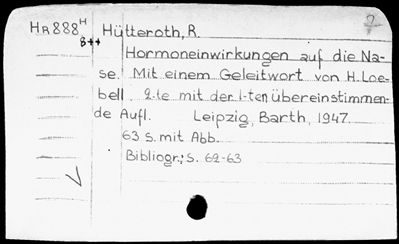 HR888H Hütteroth, R.
8++
Hormoneinwirkungen auf die Na-
se. Mit einem Geleitwort von H. Loe-
bell. 2.te mit der 1-ten übereinstimmen-
de Aufl. Leipzig, Barth, 1947.
63 S. mit Abb.
Bibliogr.; S. 62-63